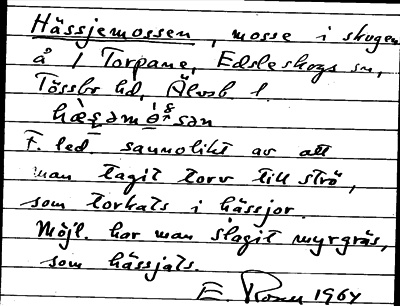 Hässjemossen, mosse i skogen
å 1 Torpane, Edsleskogs sn,
Tössbo hd, Älvsb l.
F. led. sannolikt av att
man tagit torv till strö,
som torkats i hässjor.
Möjl. har man slagit myrgräs,
som hässjats.
E. 1964